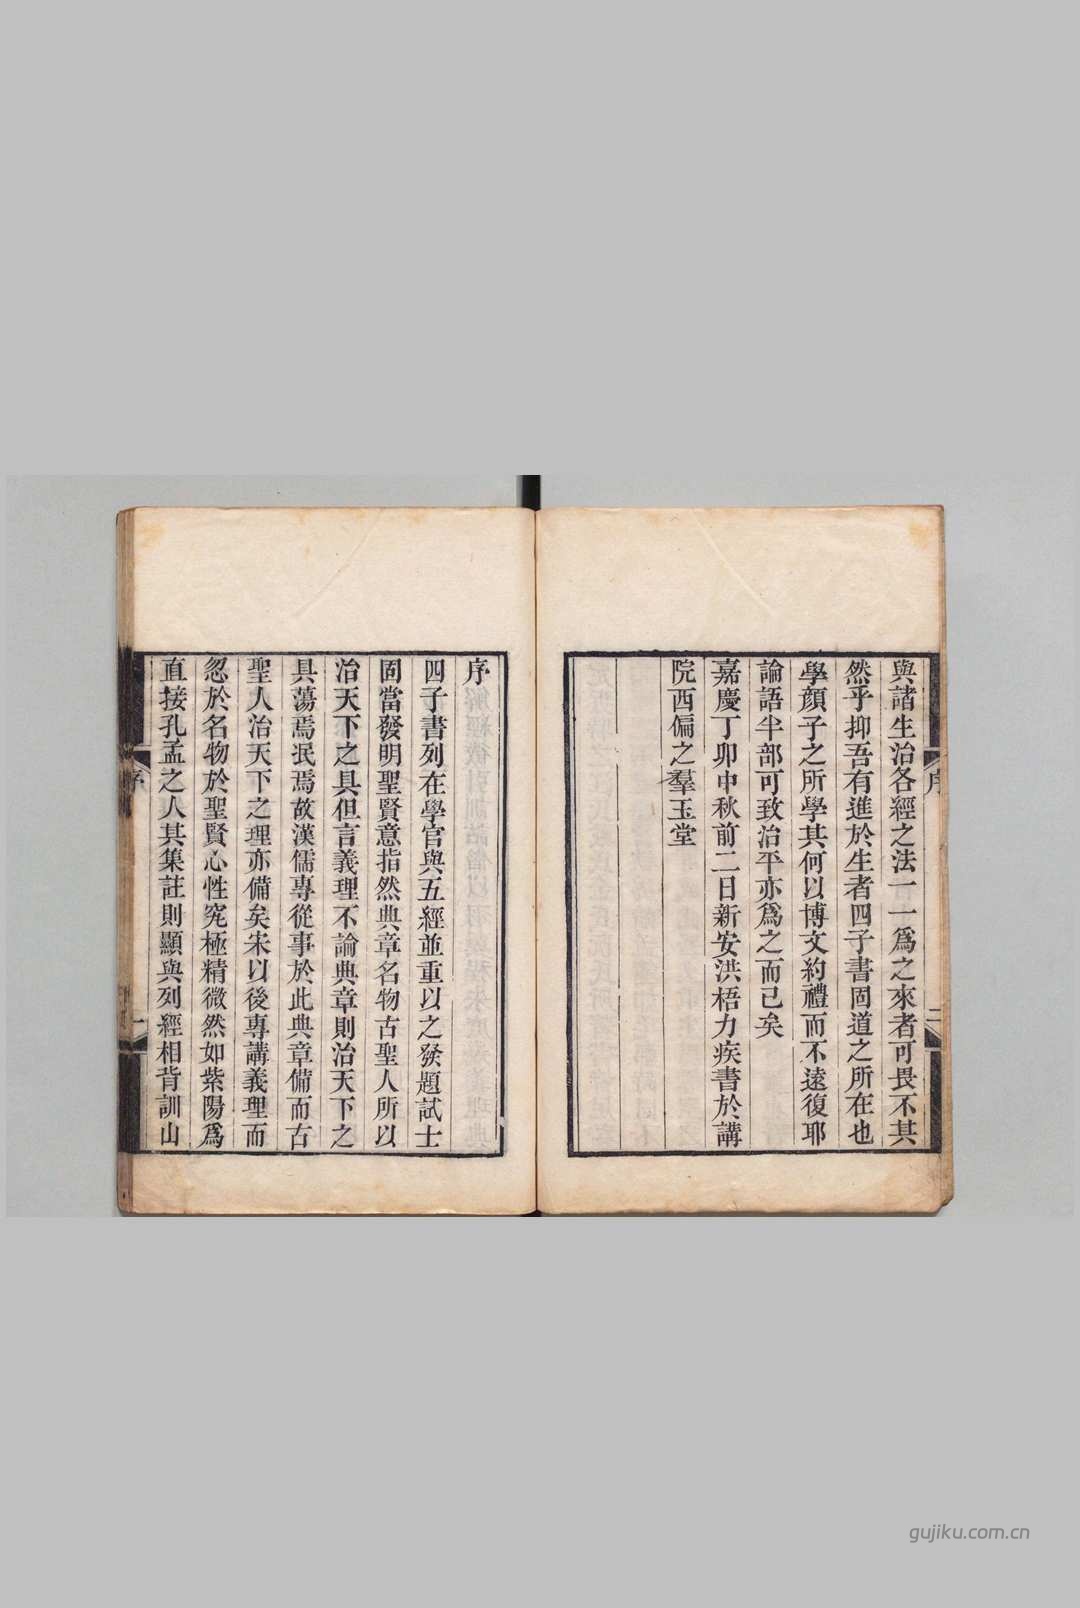 與諸生治各經之法一一爲之來者可畏不其
然乎抑吾有進於生者四子書固道之所在也
學顏子之所學其何以博文約禮而不遠復耶
論語半部可致治平亦爲之而已矣
嘉慶丁卯中秋前二日新安洪梧力疾書於講
院西偏之羣玉堂
序
二
序
四子書列在學官與五經並重以之發題試士
固當發明聖賢意指然典章名物古聖人所以
治天下之具但言義理不論典章則治天下之
具蕩焉泯焉故漢儒專從事於此典章備而古
聖人治天下之理亦備矣宋以後專講義理而
忽於名物於聖賢心性究極精微然如紫陽爲
直接孔孟之人其集註則顯與列經相背訓山
序
一
gujiku.com.cn